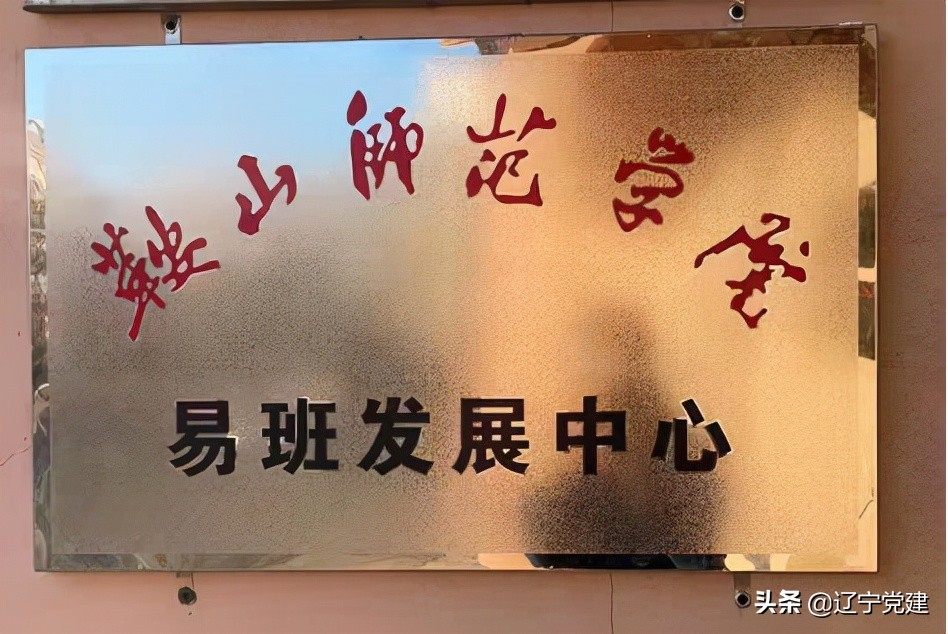 鞍山师范学院
易班发展中心
头条 @辽宁党建